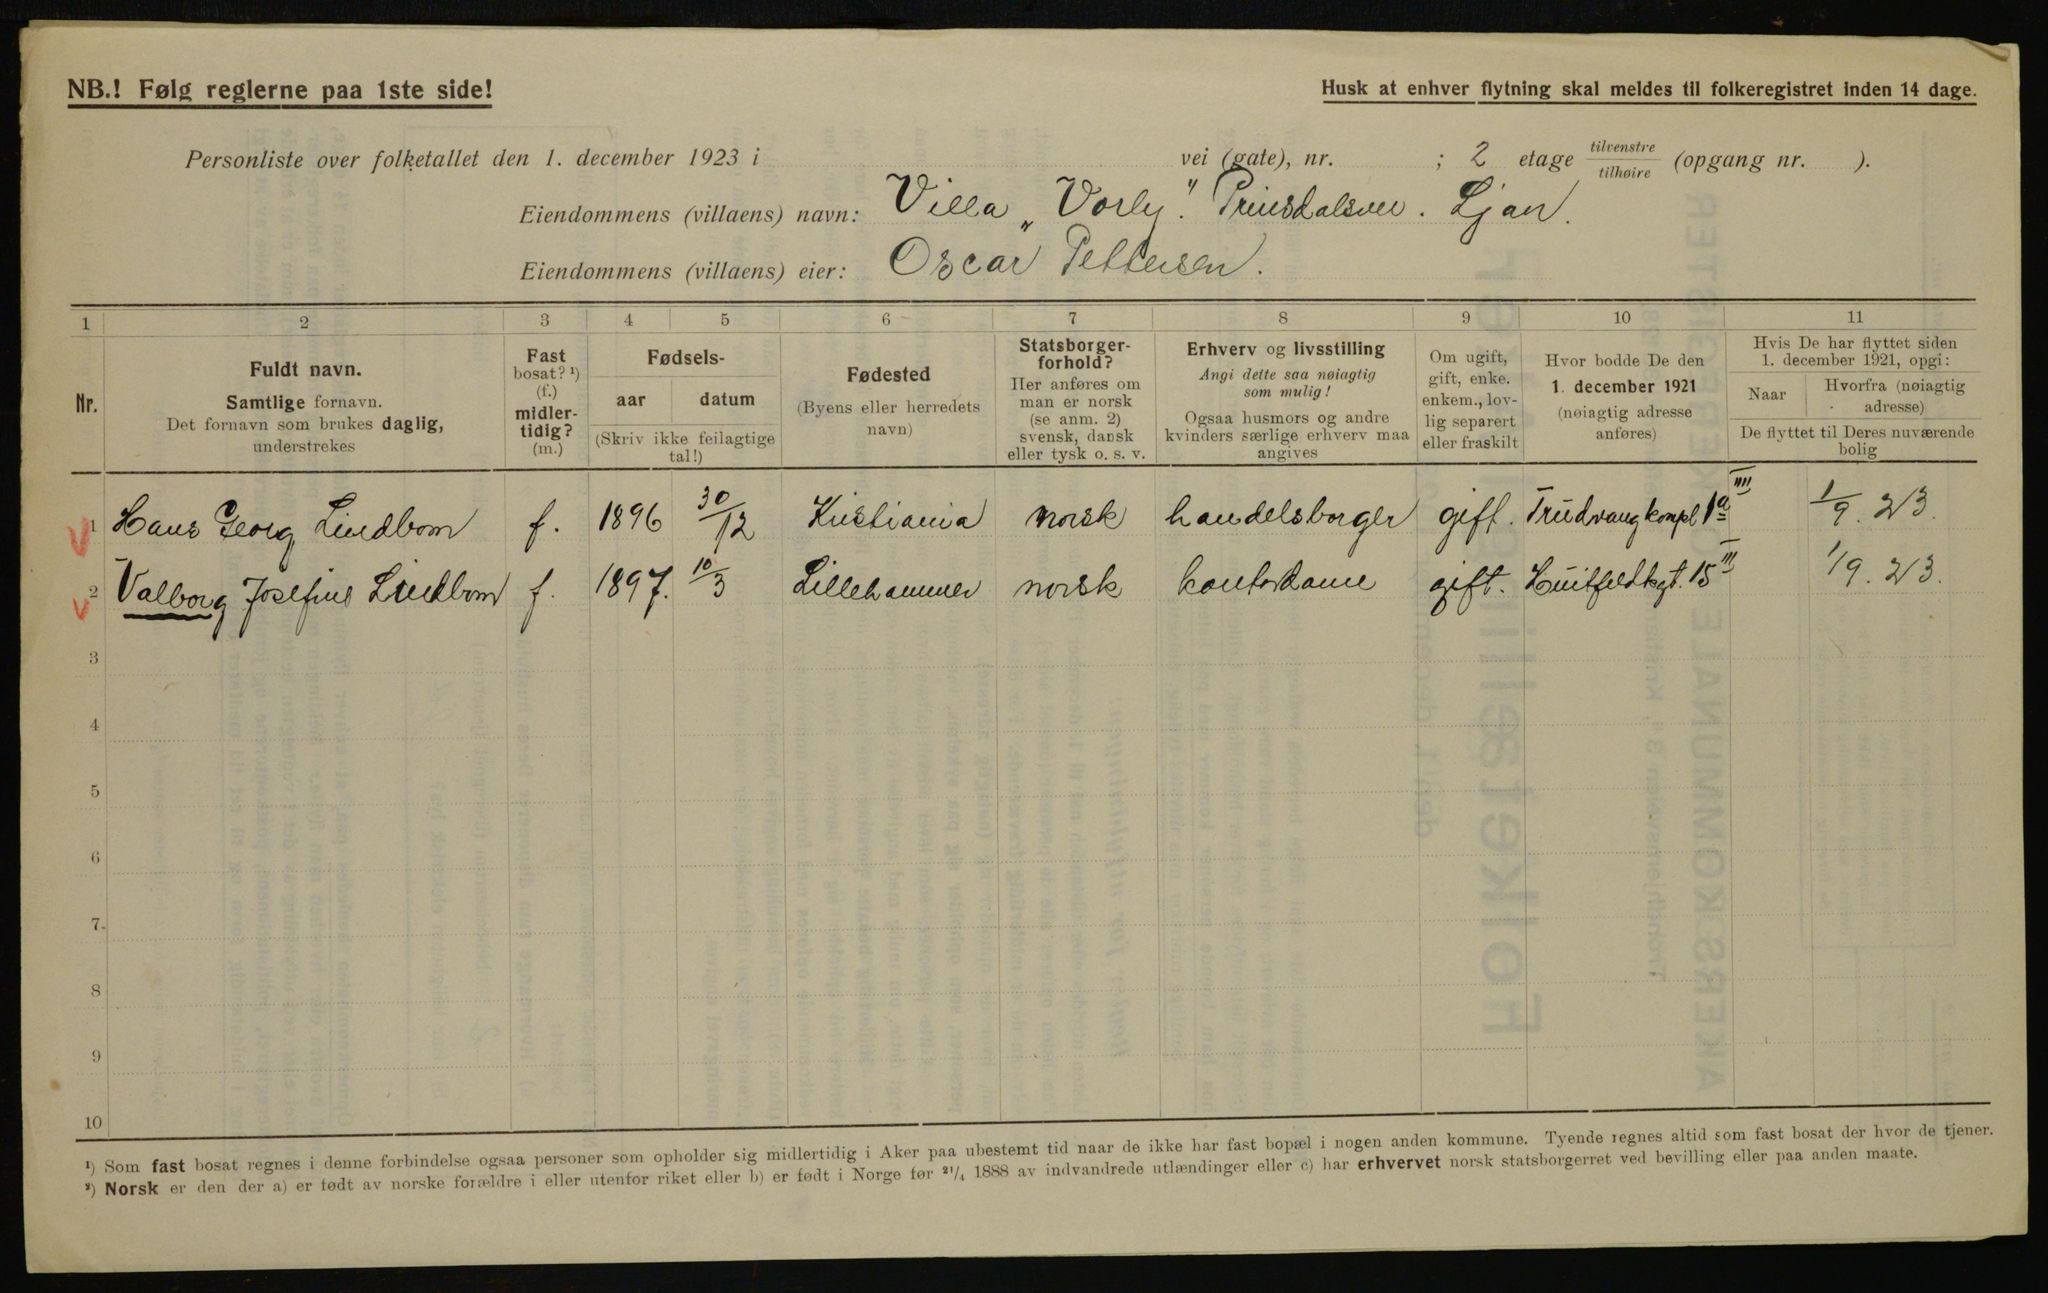 NB.! Følg reglerne paa 1ste side!
Husk at enhver flytning skal meldes til folkeregistret inden 14 dage.
Personliste over folketallet den 1. december 1923 i vei (gate), nr. ; 2 etage tilvenstre/tilhøire (opgang nr. ).
Eiendommens (villaens) navn: Villa „Vorly". Prinsdalsvei. Ljan.
Eiendommens (villaens) eier: Oscar Pettersen.
1 2 3 4 5 6 7 8 9 10 11
Nr.
Fuldt navn.
Samtlige fornavn.
Det fornavn som brukes daglig,
understrekes
Fast
bosat? ¹)
(f.)
midler-
tidig?
(m.)
Fødsels-
aar datum
(Skriv ikke feilagtige
tal!)
Fødested
(Byens eller herredets
navn)
Statsborger-
forhold?
Her anføres om
man er norsk
(se anm. 2)
svensk, dansk
eller tysk o. s. v.
Erhverv og livsstilling
Angi dette saa nøiagtig
som mulig!
Ogsaa husmors og andre
kvinders særlige erhverv maa
angives
Om ugift,
gift, enke.
enkem., lov-
lig separert
eller fraskilt
Hvor bodde De den
1. december 1921
(nøiagtig adresse
anføres)
Hvis De har flyttet siden
1. december 1921, opgi:
Naar
Hvorfra (nøiagtig
adresse)
De flyttet til Deres nuværende
bolig
1 Hans Georg Lindbom f. 1896 30/12 Kristiania norsk handelsborger gift. Trudvangkompl 1a IIII 1/9. 23.
2 Valborg Josefine Lindbom f. 1897. 10/3 Lillehammer norsk kontordame gift. Huitfeldtsgt. 15 III 1/9. 23.
3
4
5
6
7
8
9
10
¹) Som fast bosat regnes i denne forbindelse ogsaa personer som opholder sig midlertidig i Aker paa ubestemt tid naar de ikke har fast bopæl i nogen anden kommune. Tyende regnes altid som fast bosat der hvor de tjener.
²) Norsk er den der a) er født av norske forældre i eller utenfor riket eller b) er født i Norge før ²¹/₄ 1888 av indvandrede utlændinger eller c) har erhvervet norsk statsborgerret ved bevilling eller paa anden maate.